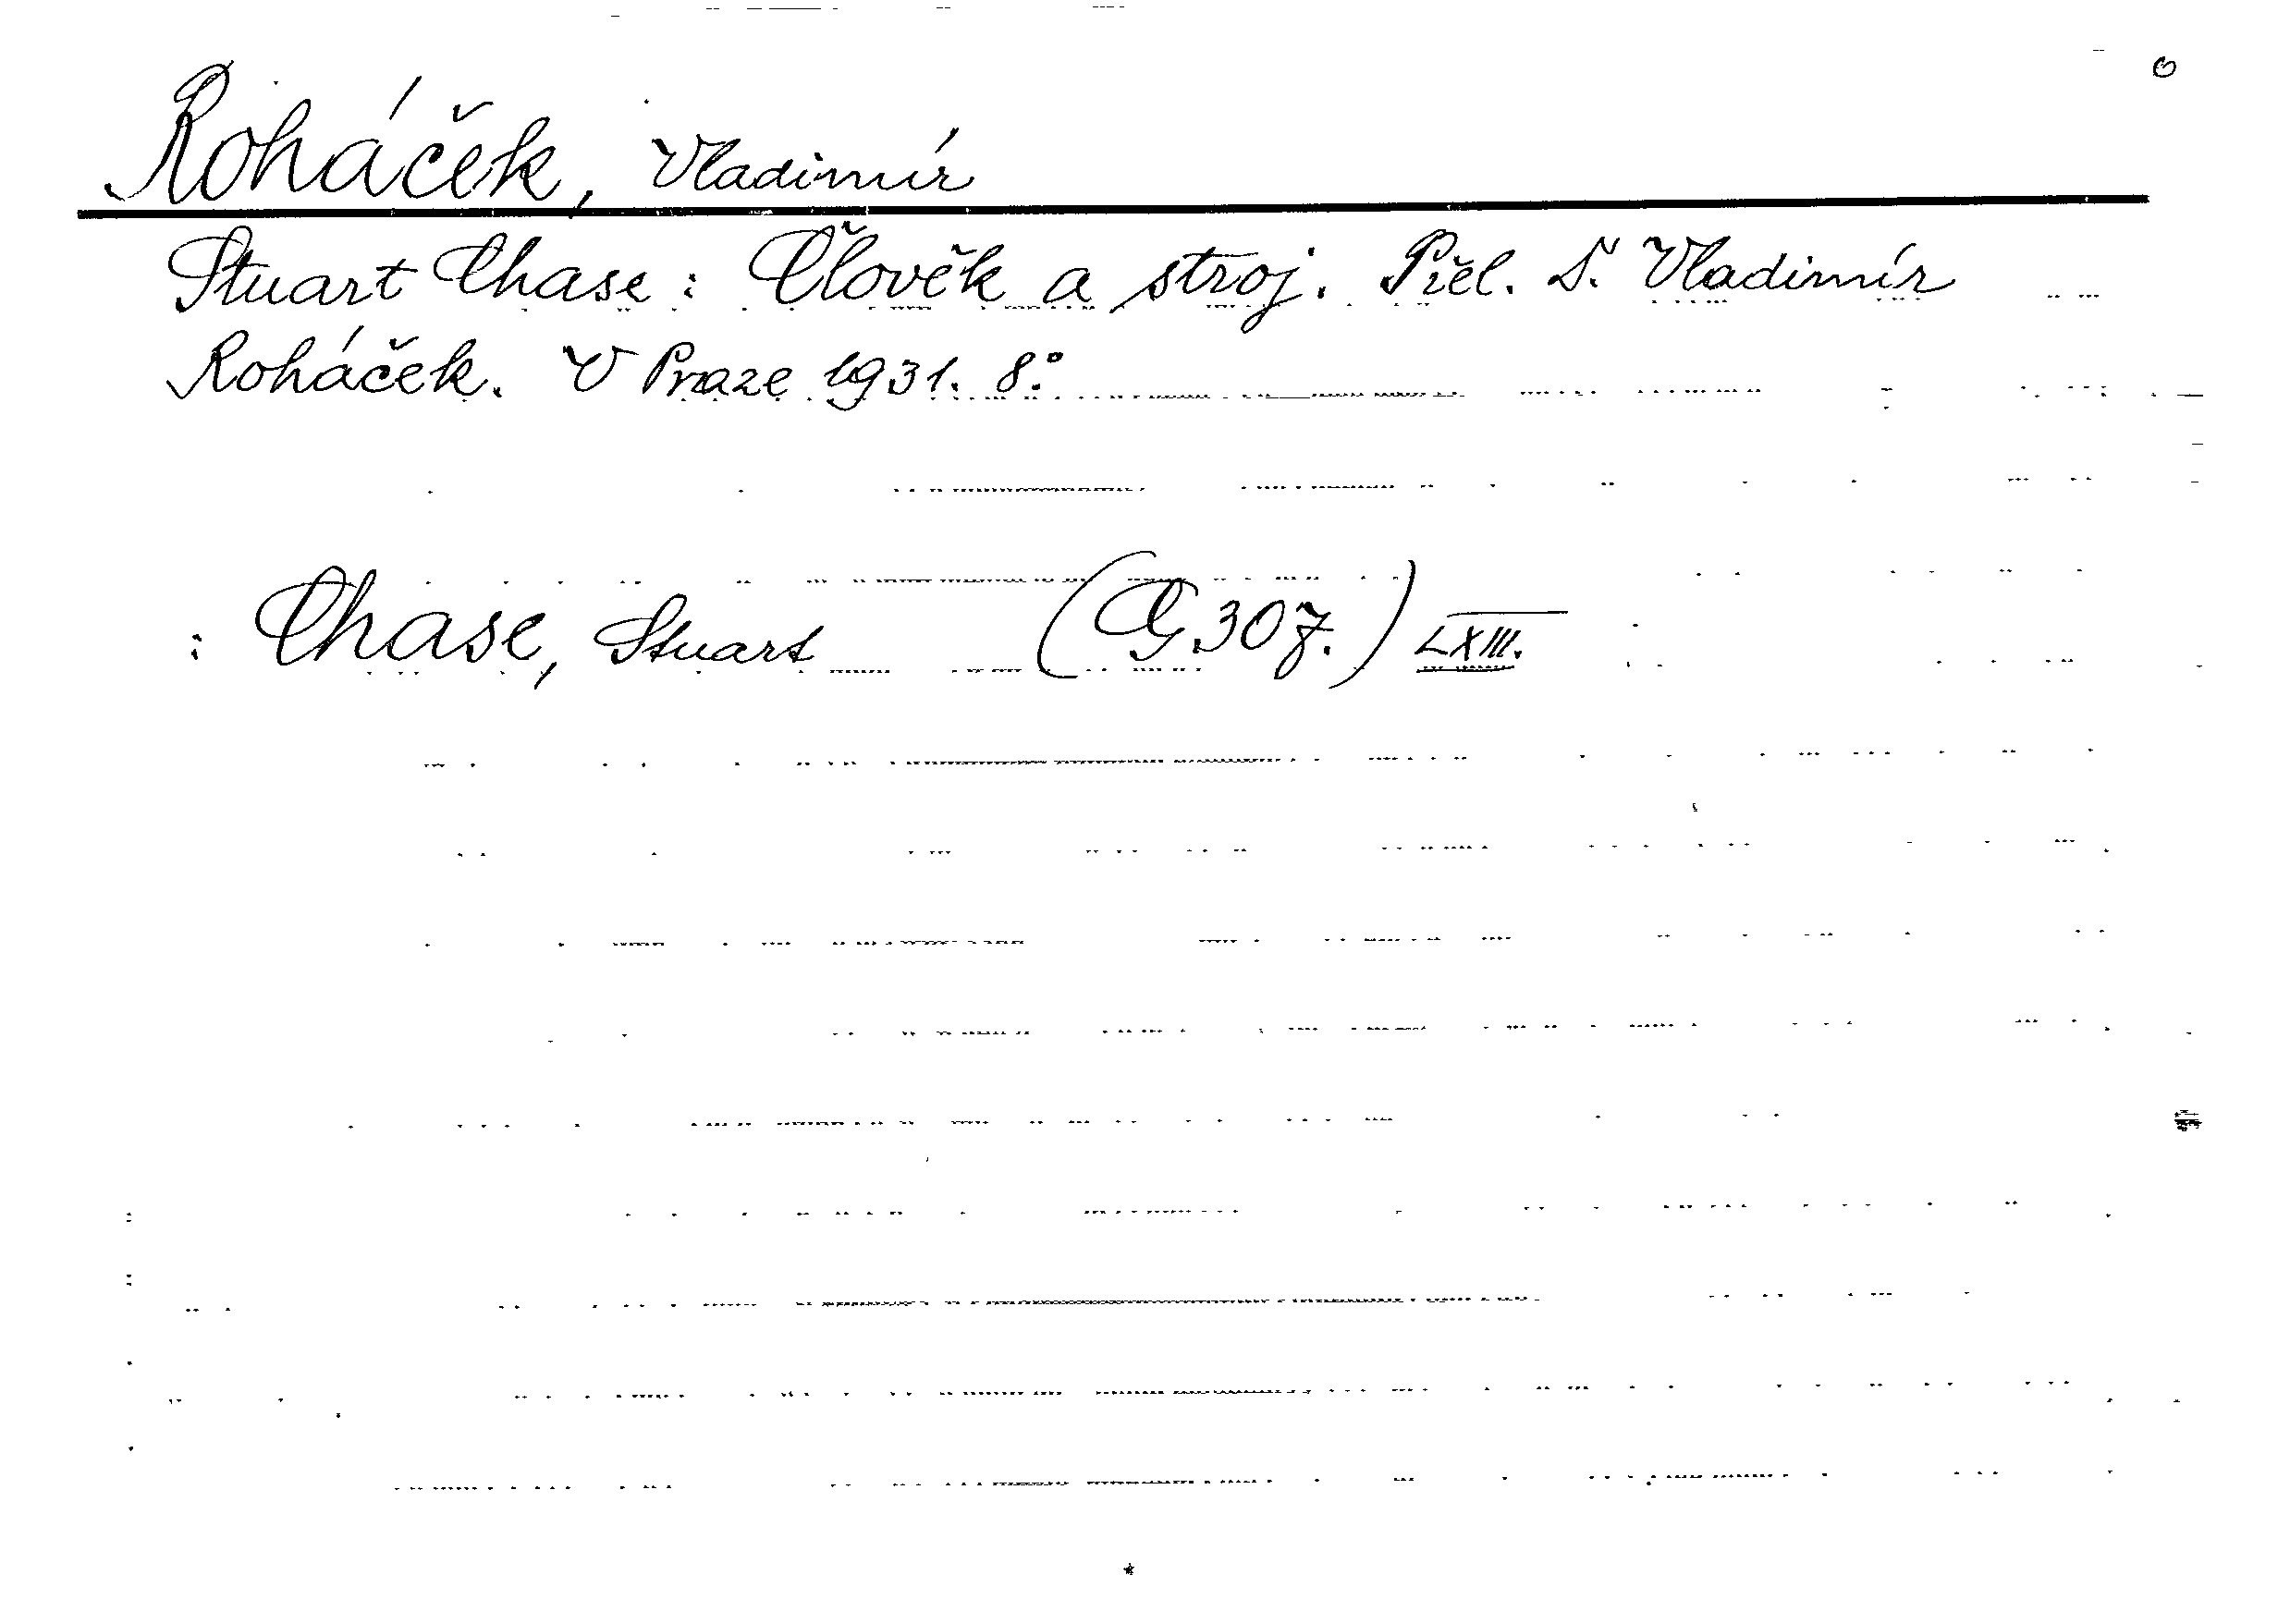 Roháček, Vladimír
Stuart Chase: Člověk a stroj. Přel. Dr. Vladimír
Roháček. V Praze 1931. 8.°
: Chase, Stuart (G.307.) LXIII.